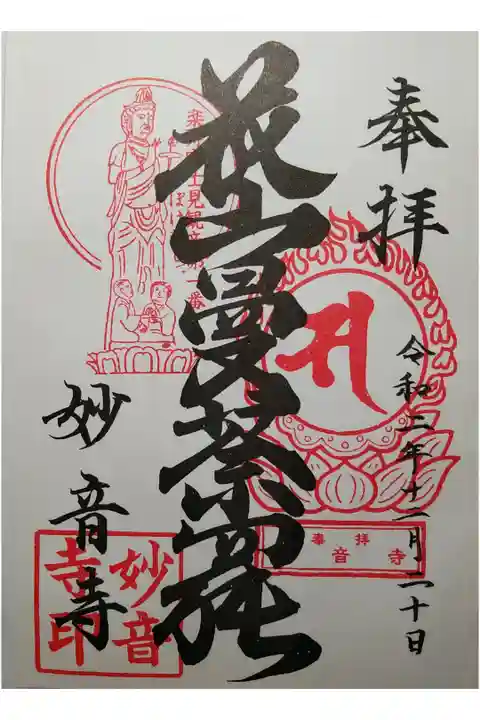 奉拝
令和二年十二月二十日
奉拝
音寺
花山曼荼羅
第一番
妙音寺
妙音
寺印